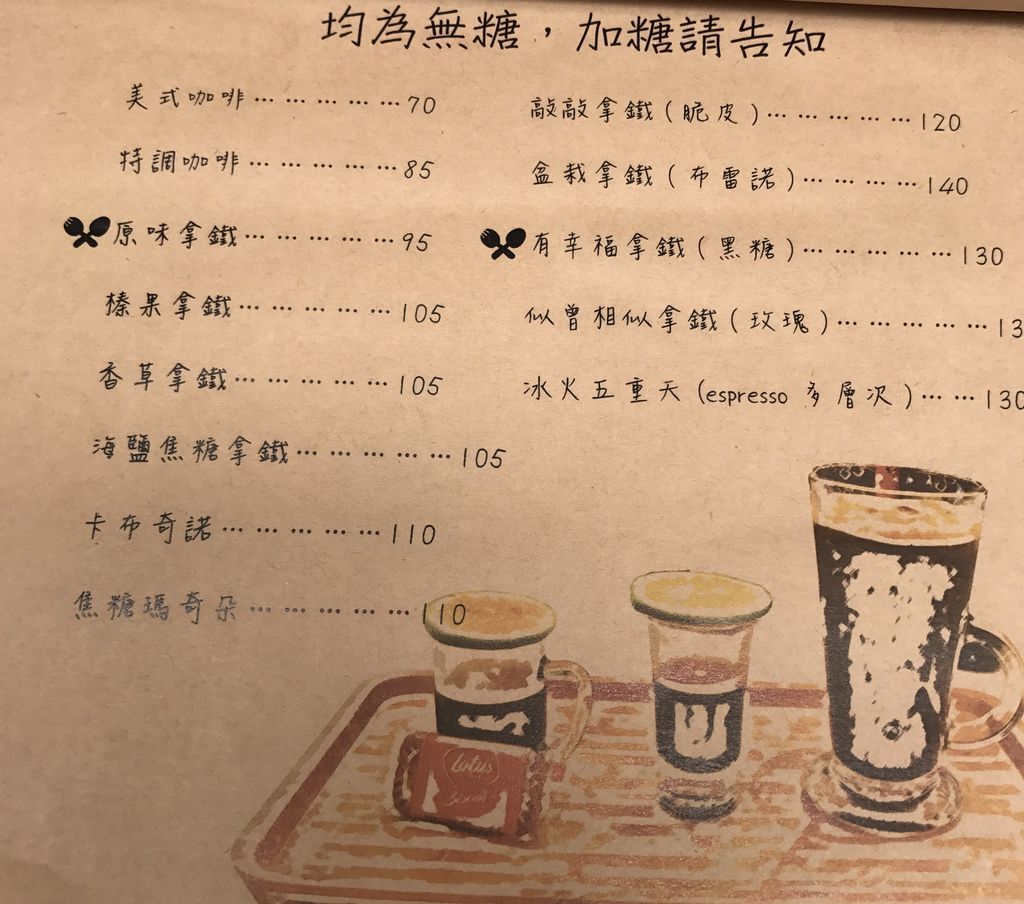 均為無糖，加糖請告知
美式咖啡……………70
特調咖啡……………85
原味拿鐵……………95
榛果拿鐵……………105
香草拿鐵……………105
海鹽焦糖拿鐵……………105
卡布奇諾……………110
焦糖瑪奇朵……………110
敲敲拿鐵(脆皮)……………120
盆栽拿鐵(布雷諾)…………140
有幸福拿鐵(黑糖)……………130
似曾相似拿鐵(玫瑰)……………13
冰火五重天(espresso 多層次)……130
Lotus